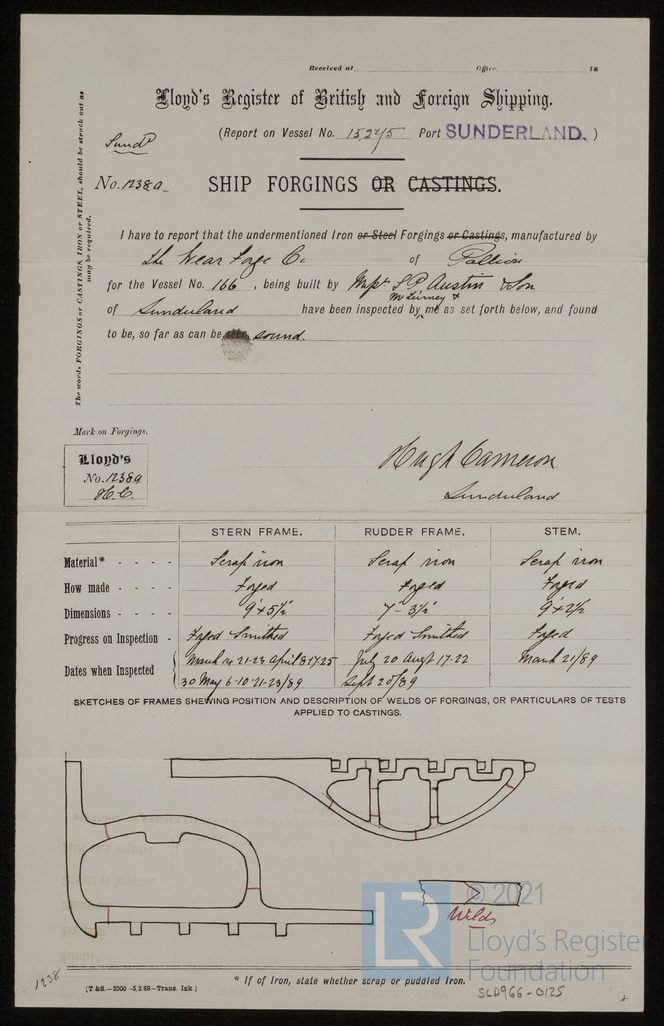 Received at Office. 18
Lloyd's Register of British and Foreign Shipping.
(Report on Vessel No. 15,245 Port SUNDERLAND.)
Sundd
No. 1238a
SHIP FORGINGS OR CASTINGS.
The words FORGINGS or CASTINGS, IRON or STEEL, should be struck out as
may be required.
I have to report that the undermentioned Iron or Steel Forgings or Castings, manufactured by
the Wear Forge Co of Pallion
for the Vessel No. 166, being built by Messrs S. P. Austin & Son
McLimey &
of Sunderland have been inspected by me as set forth below, and found
to be, so far as can be seen, sound.
Mark on Forgings.
Lloyd's
No. 1238a
H.C.
Hugh Cameron
Sunderland
STERN FRAME. RUDDER FRAME. STEM.
Material* - - - - Scrap iron Scrap iron Scrap iron
How made - - - - Forged Forged Forged
Dimensions - - - - 9 x 5½ 7 - 3½ 9 x 2½
Progress on Inspection - Forged Smithed Forged Smithed Forged
Dates when Inspected March 14-21-23 April 8-17-25 July 20 Augst 17-22 March 21/89
30 May 6-10-21-23/89 Sept 20/89
SKETCHES OF FRAMES SHEWING POSITION AND DESCRIPTION OF WELDS OF FORGINGS, OR PARTICULARS OF TESTS
APPLIED TO CASTINGS.
Welds
© 2021
LR Lloyd's Register
Foundation
* If of Iron, state whether scrap or puddled Iron.
1238
[T.&S.—2000—5,3:88—Trans. Ink.]
SLD966-0125